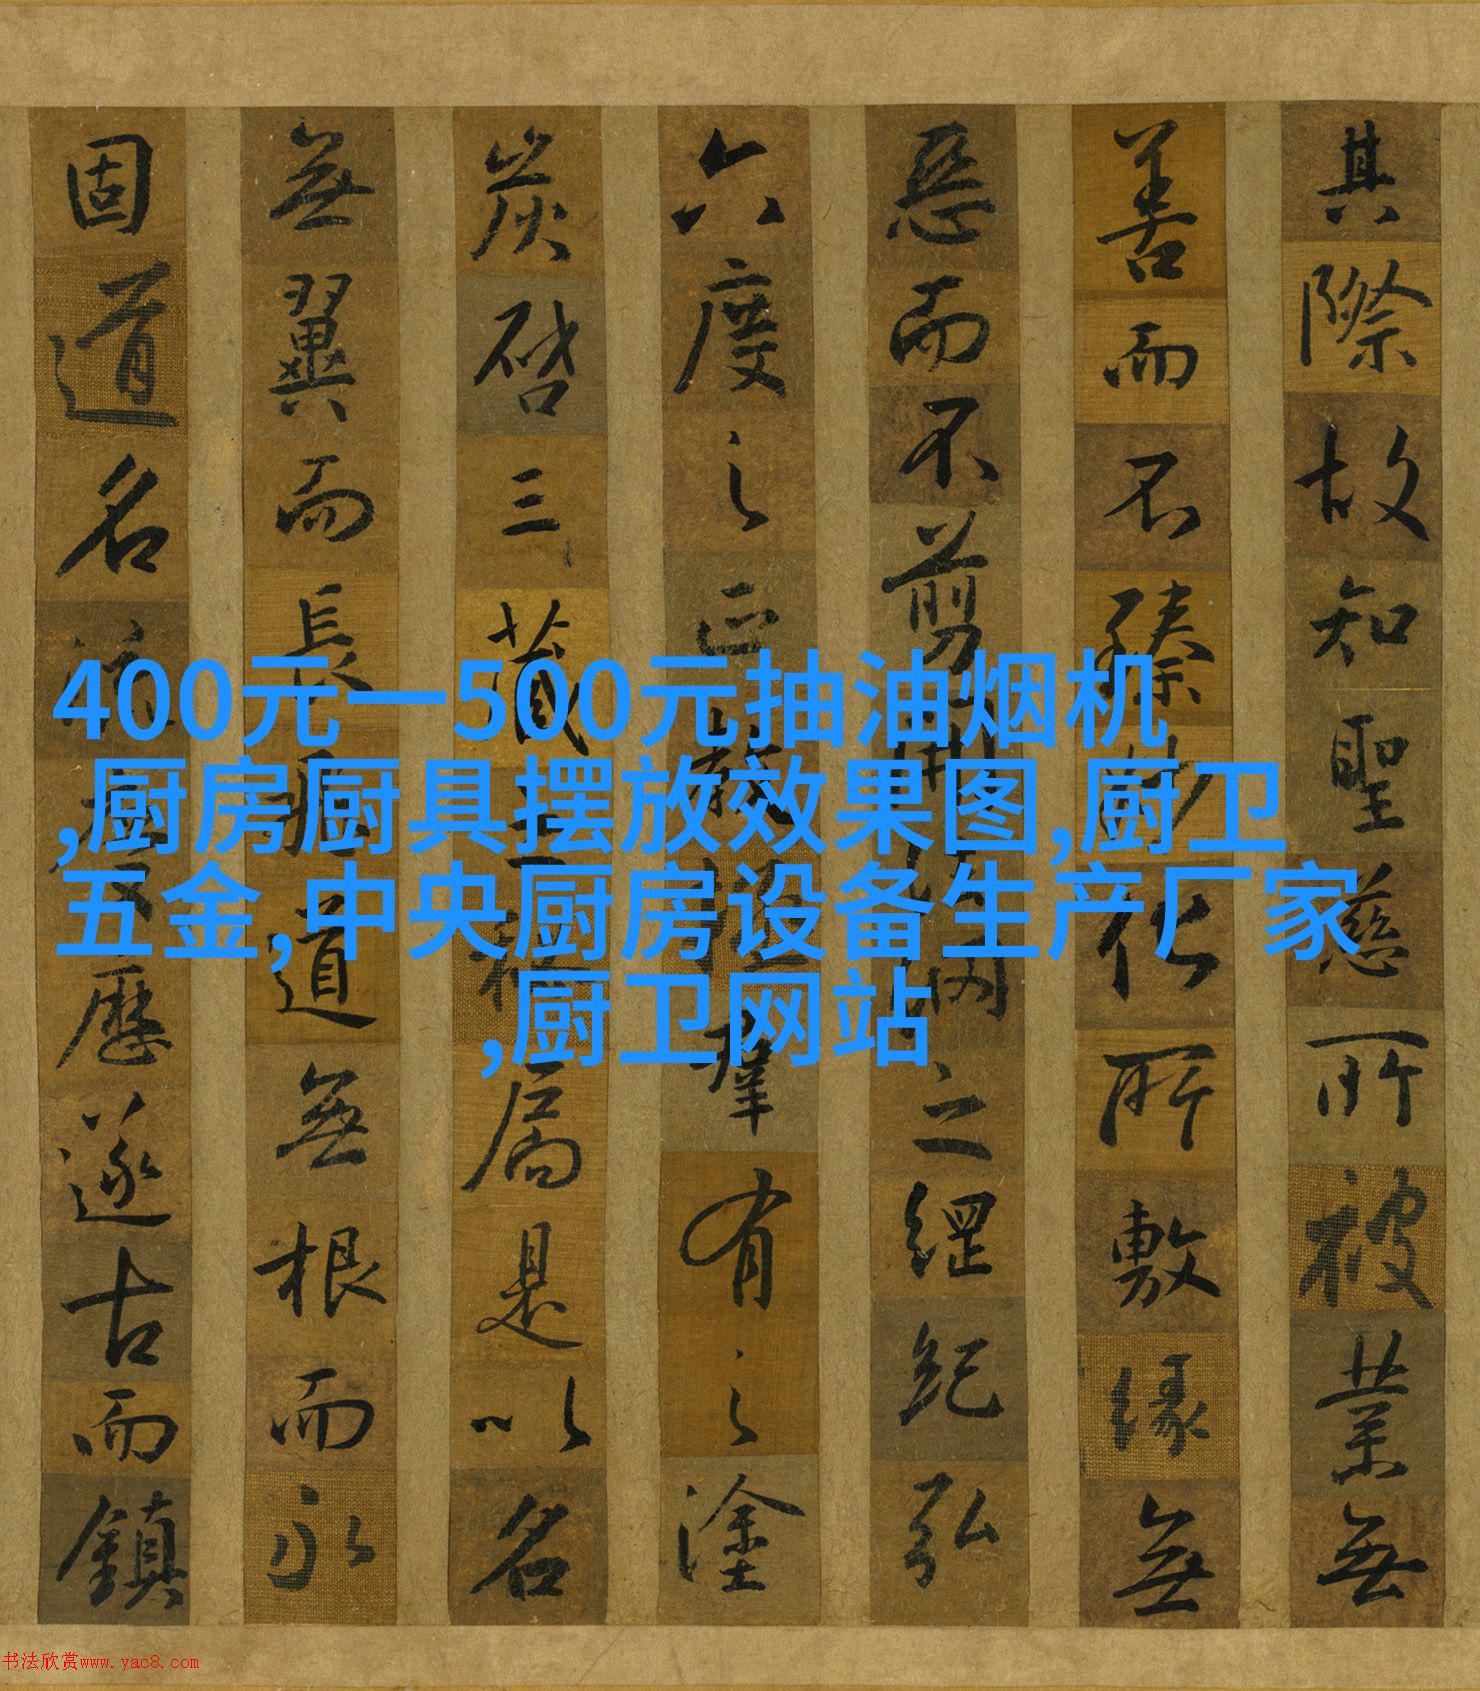 其際故知聖慈所被業無
善而不臻妙化所敷緣無
惡而不剪開法網之綱紀弘
六度之正教拯羣有之塗
炭啓三藏之秘扃是以名
無翼而長飛道無根而永
固道名流慶歷遂古而鎮
400元一500元抽油烟机
,厨房厨具摆放效果图,厨卫
五金,中央厨房设备生产厂家
,厨卫网站
书法欣赏www.yac8.com